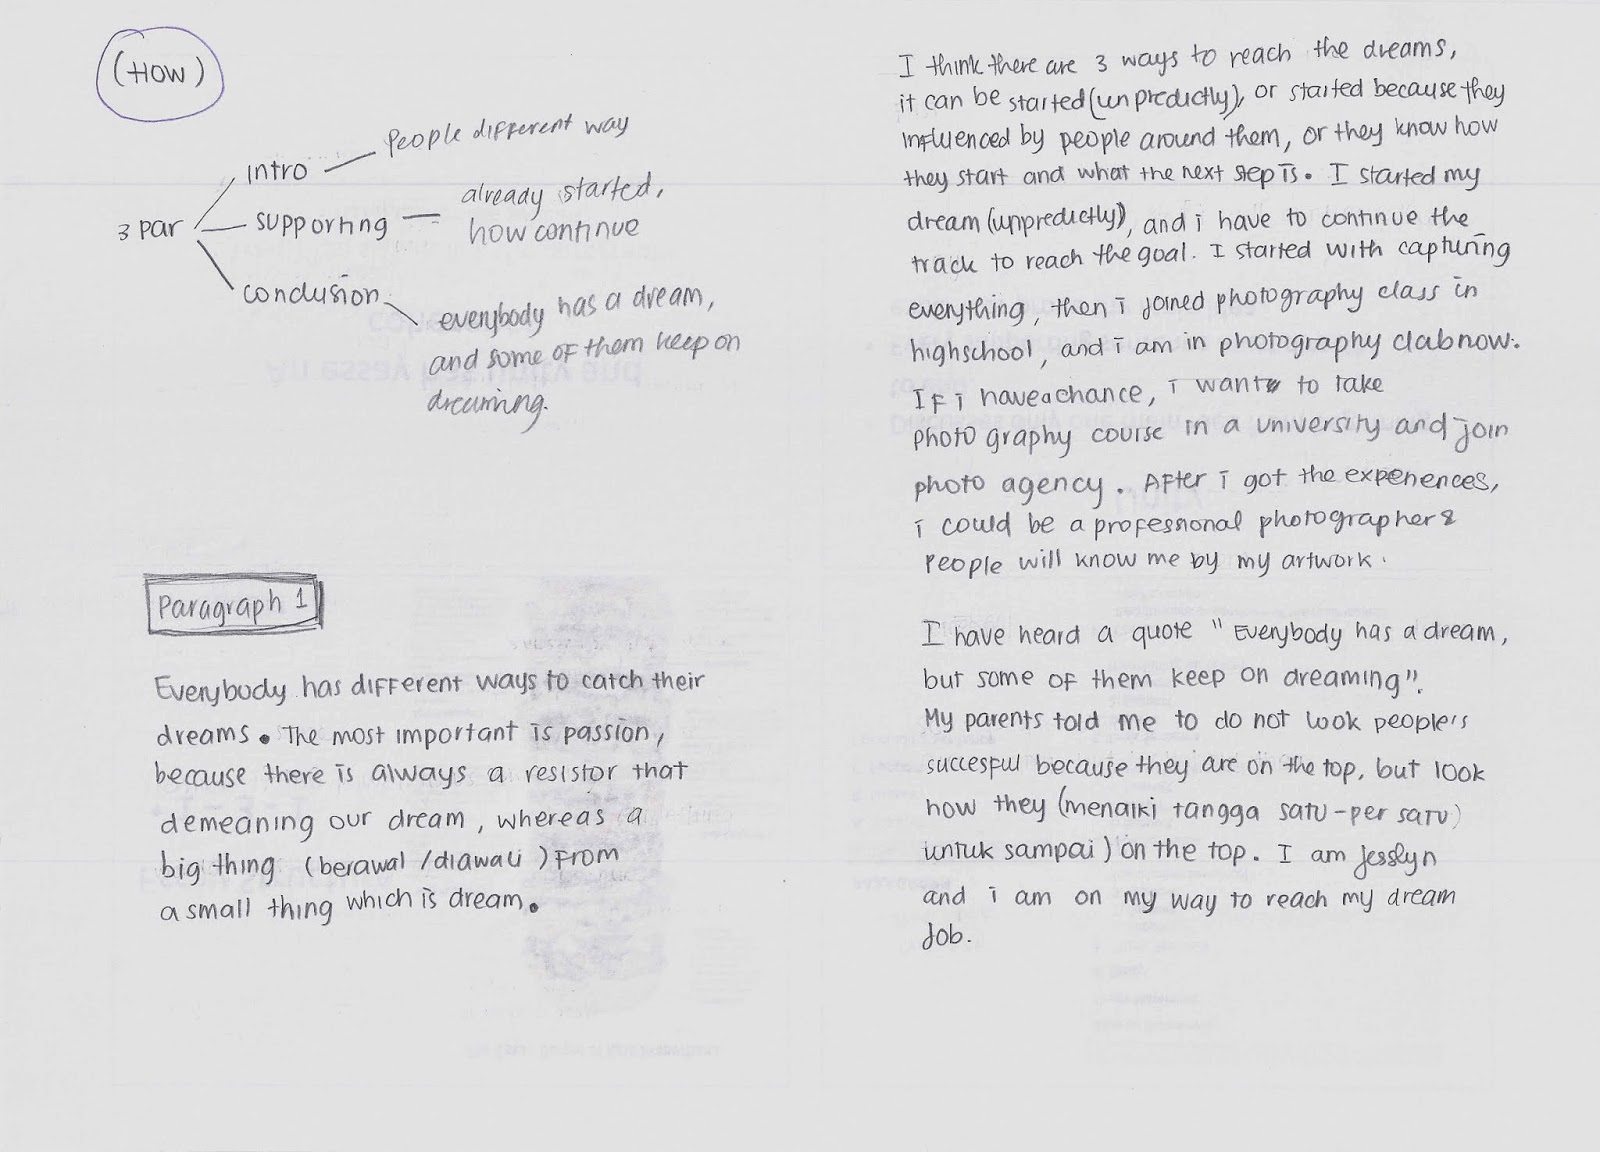 (HOW)
3 par
intro
people different way
supporting
already started,
how continue
conclusion
everybody has a dream,
and some of them keep on
dreaming.
Paragraph 1
Everybody has different ways to catch their
dreams. The most important is passion,
because there is always a resistor that
demeaning our dream, whereas a
big thing (berawal/diawali) from
a small thing which is dream.
I think there are 3 ways to reach the dreams,
it can be started (unpredictly), or started because they
influenced by people around them, or they know how
they start and what the next step is. I started my
dream (unpredictly), and i have to continue the
track to reach the goal. I started with capturing
everything, then i joined photography class in
highschool, and i am in photography clab now.
If i have a chance, i want to take
photography course in a university and join
photo agency. After i got the experiences,
i could be a professional photographer &
people will know me by my artwork.
I have heard a quote "Everybody has a dream,
but some of them keep on dreaming".
My parents told me to do not look people's
succesful because they are on the top, but look
how they (menaiki tangga satu-per satu
untuk sampai) on the top. I am Jesslyn
and i am on my way to reach my dream
job.